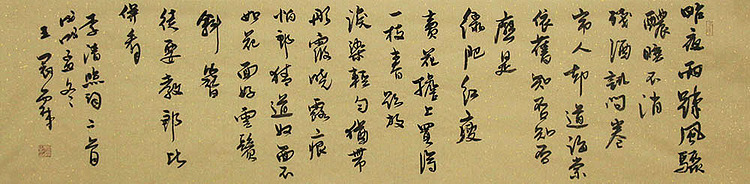 昨夜雨疎風驟
濃睡不消
殘酒試問卷
帘人却道海棠
依舊知否知否
應是
綠肥紅瘦
賣花擔上買得
一枝春欲放
淚染輕勻猶帶
彤霞曉露痕
怕郎猜道奴面不
如花面好雲鬢
斜簪
徒要教郎比
併看
李清照詞二首
孟冬
王